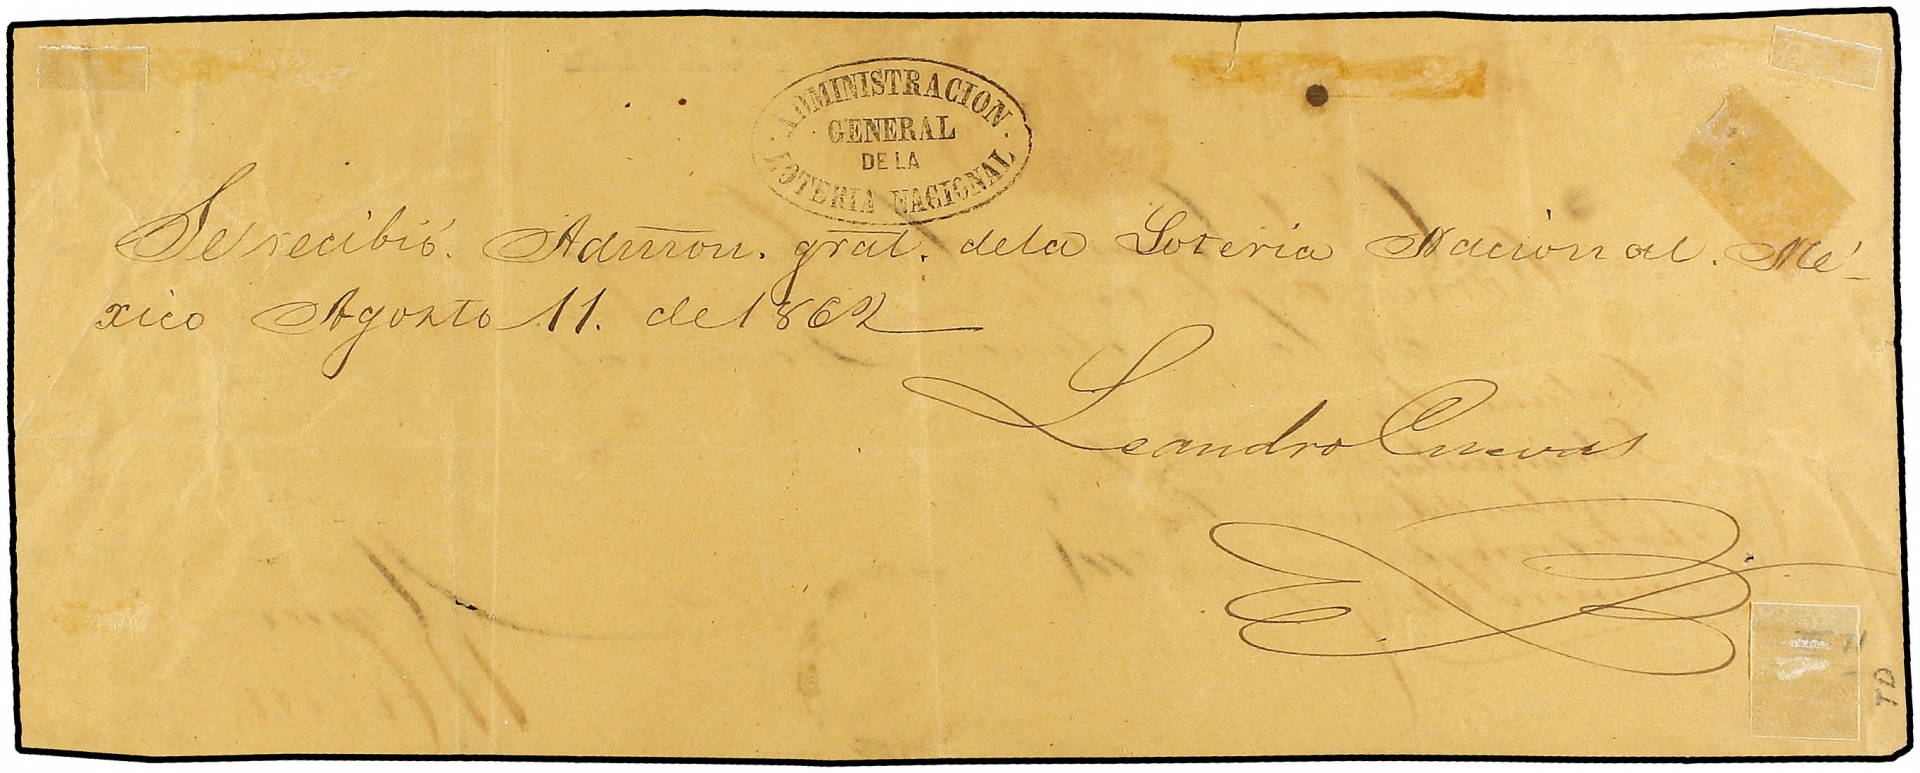 ADMINISTRACION
GENERAL
DE LA
LOTERIA NACIONAL
Se recibió. Admon. gral. de la Loteria Nacional. Mé-
xico Agosto 11. de 1862
Leandro Cuevas
TD